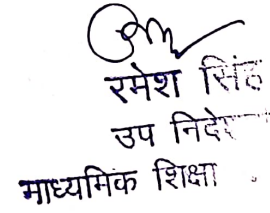 रमेश सिंह
उप
माध्यमिक शिक्षा